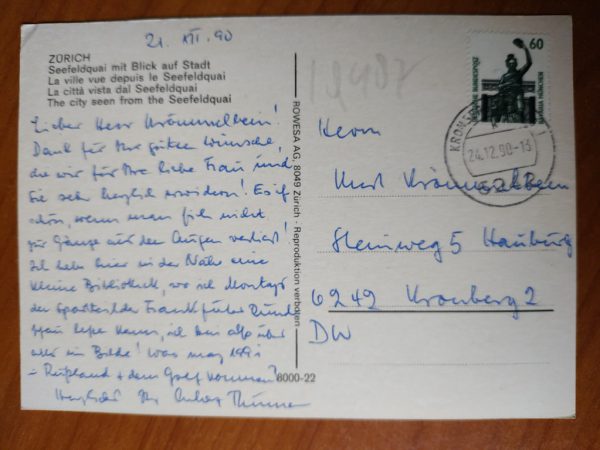 21. XII. 90
ZÜRICH
Seefeldquai mit Blick auf Stadt
La ville vue depuis le Seefeldquai
La città vista dal Seefeldquai
The city seen from the Seefeldquai
Lieber Herr Krömmelbein!
Dank für Ihre guten Wünsche,
die wir für Ihre liebe Frau und
Sie sehr herzlich erwidern! Es ist
schön, wenn man sich nicht
zur Gänze aus den Augen verliert!
Ich habe hier in der Nähe eine
kleine Bibliothek, wo ich Montags
der Frankfurter Rund
schau lesen kann, ich bin also über
alles im Bilde! Was mag 1991
- Rußland + dem Golf kommen?
Herzlichst Ihr
ROWESA AG, 8049 Zürich · Reproduktion verboten
8000-22
60
DEUTSCHE BUNDESPOST
24.12.90-13
Herrn
Krömmelbein
Steinweg 5
6242 Kronberg 2